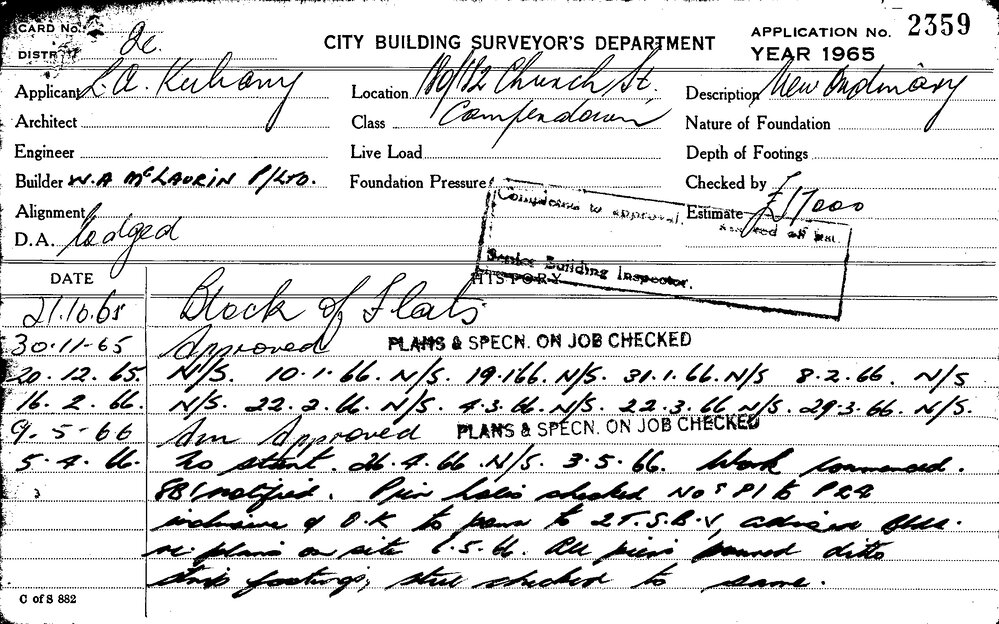 CARD No.
2359
APPLICATION No.
CITY BUILDING SURVEYOR'S DEPARTMENT
DISTRICT 2c.
YEAR 1965
Applicant L.A. Location 180/182 Church St. Description New Ordinary
Architect Class Camperdown Nature of Foundation
Engineer Live Load Depth of Footings
Builder W.A McLAURIN P/LTD. Foundation Pressure Checked by
Alignment Estimate £17000
D.A. lodged
Completed to approval.
Senior Building Inspector.
DATE HISTORY
21.10.65 Block of Flats
30-11-65 Approved PLANS & SPECN. ON JOB CHECKED
20.12.65. N/S. 10.1.66. N/S. 19.1.66. N/S. 31.1.66. N/S 8.2.66. N/S
16.2.66. N/S. 22.2.66. N/S. 4.3.66. N/S. 22.3.66 N/S. 29.3.66. N/S.
9-5-66 Am Approved PLANS & SPECN. ON JOB CHECKED
5.4.66. No start. 26.4.66. N/S. 3.5.66. Work commenced.
notified. Pier holes checked No's P1 to
inclusive & O.K to pour to
re plans on site .5.66. All piers poured ditto
strip footings, steel checked to same.
C of S 882